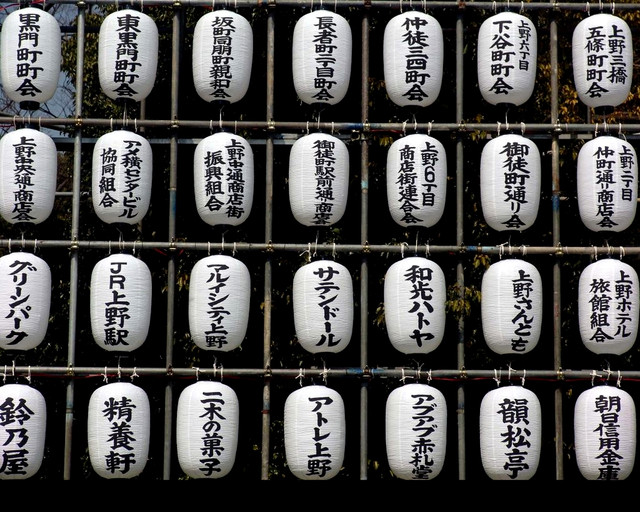 黒門町町会
東黒門町町会
坂町同朋町親和会
長者町二丁目町会
仲徒三四町会
上野六丁目
下谷町町会
上野三橋
五條町町会
上野中央通り商店会
アメ横センタービル
協同組合
上野中通商店街
振興組合
御徒町駅前通商店会
上野6丁目
商店街連合会
御徒町通り会
上野二丁目
仲町通り商店会
グリーンパーク
JR上野駅
アルイシティ上野
サテンドール
和光ハトヤ
上野さんとも
上野ホテル
旅館組合
鈴乃屋
精養軒
二木の菓子
アトレ上野
アブアブ赤札堂
韻松亭
朝日信用金庫